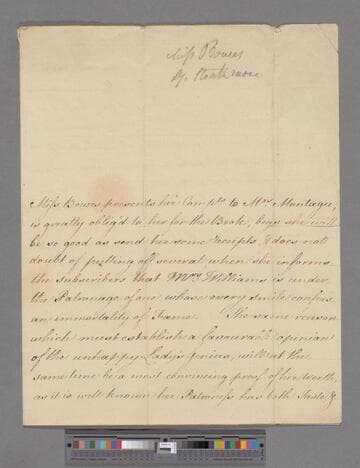 Miss Bowes
Ly. Strathmore
Miss Bowes presents her Compts. to Mrs. Montagu,
is greatly oblig'd to her for the Book, begs she will
be so good as send her some Receipts, & does not
doubt of putting off several when she informs
the Subscribers that Mrs. Williams is under
the Patronage of one whose every smile confers
an immortality of Fame. The same reason
which must establish a favourable opinion
of the unhappy Ladys genius, will at the
same time be a most convincing proof of her Worth,
as it is well known her Patroness has both Taste &